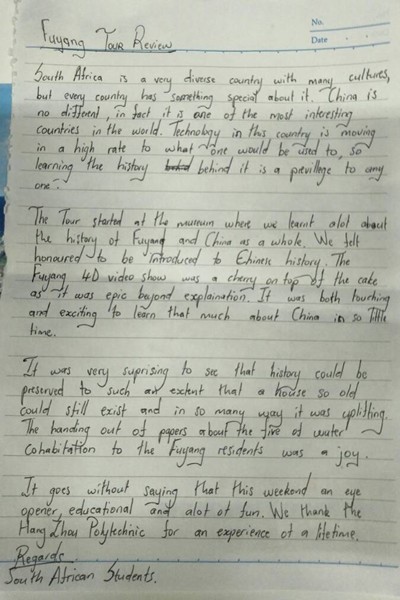 No.
Date
Fuyang Tour Review
South Africa is a very diverse country with many cultures,
but every country has something special about it. China is
no different, in fact it is one of the most interesting
countries in the world. Technology in this country is moving
in a high rate to what one would be used to, so
learning the history behind it is a previllege to any
one.
The Tour started at the museum where we learnt alot about
the history of Fuyang and China as a whole. We felt
honoured to be introduced to Chinese history. The
Fuyang 4D video show was a cherry on top of the cake
as it was epic beyond explaination. It was both touching
and exciting to learn that much about China in so little
time.
It was very suprising to see that history could be
preserved to such an extent that a house so old
could still exist and in so many way it was uplifting.
The handing out of papers about the five of water
cohabitation to the Fuyang residents was a joy.
It goes without saying that this weekend an eye
opener, educational and alot of fun. We thank the
Hang Zhou Polytechnic for an experience of a lifetime.
Regards
South African Students.